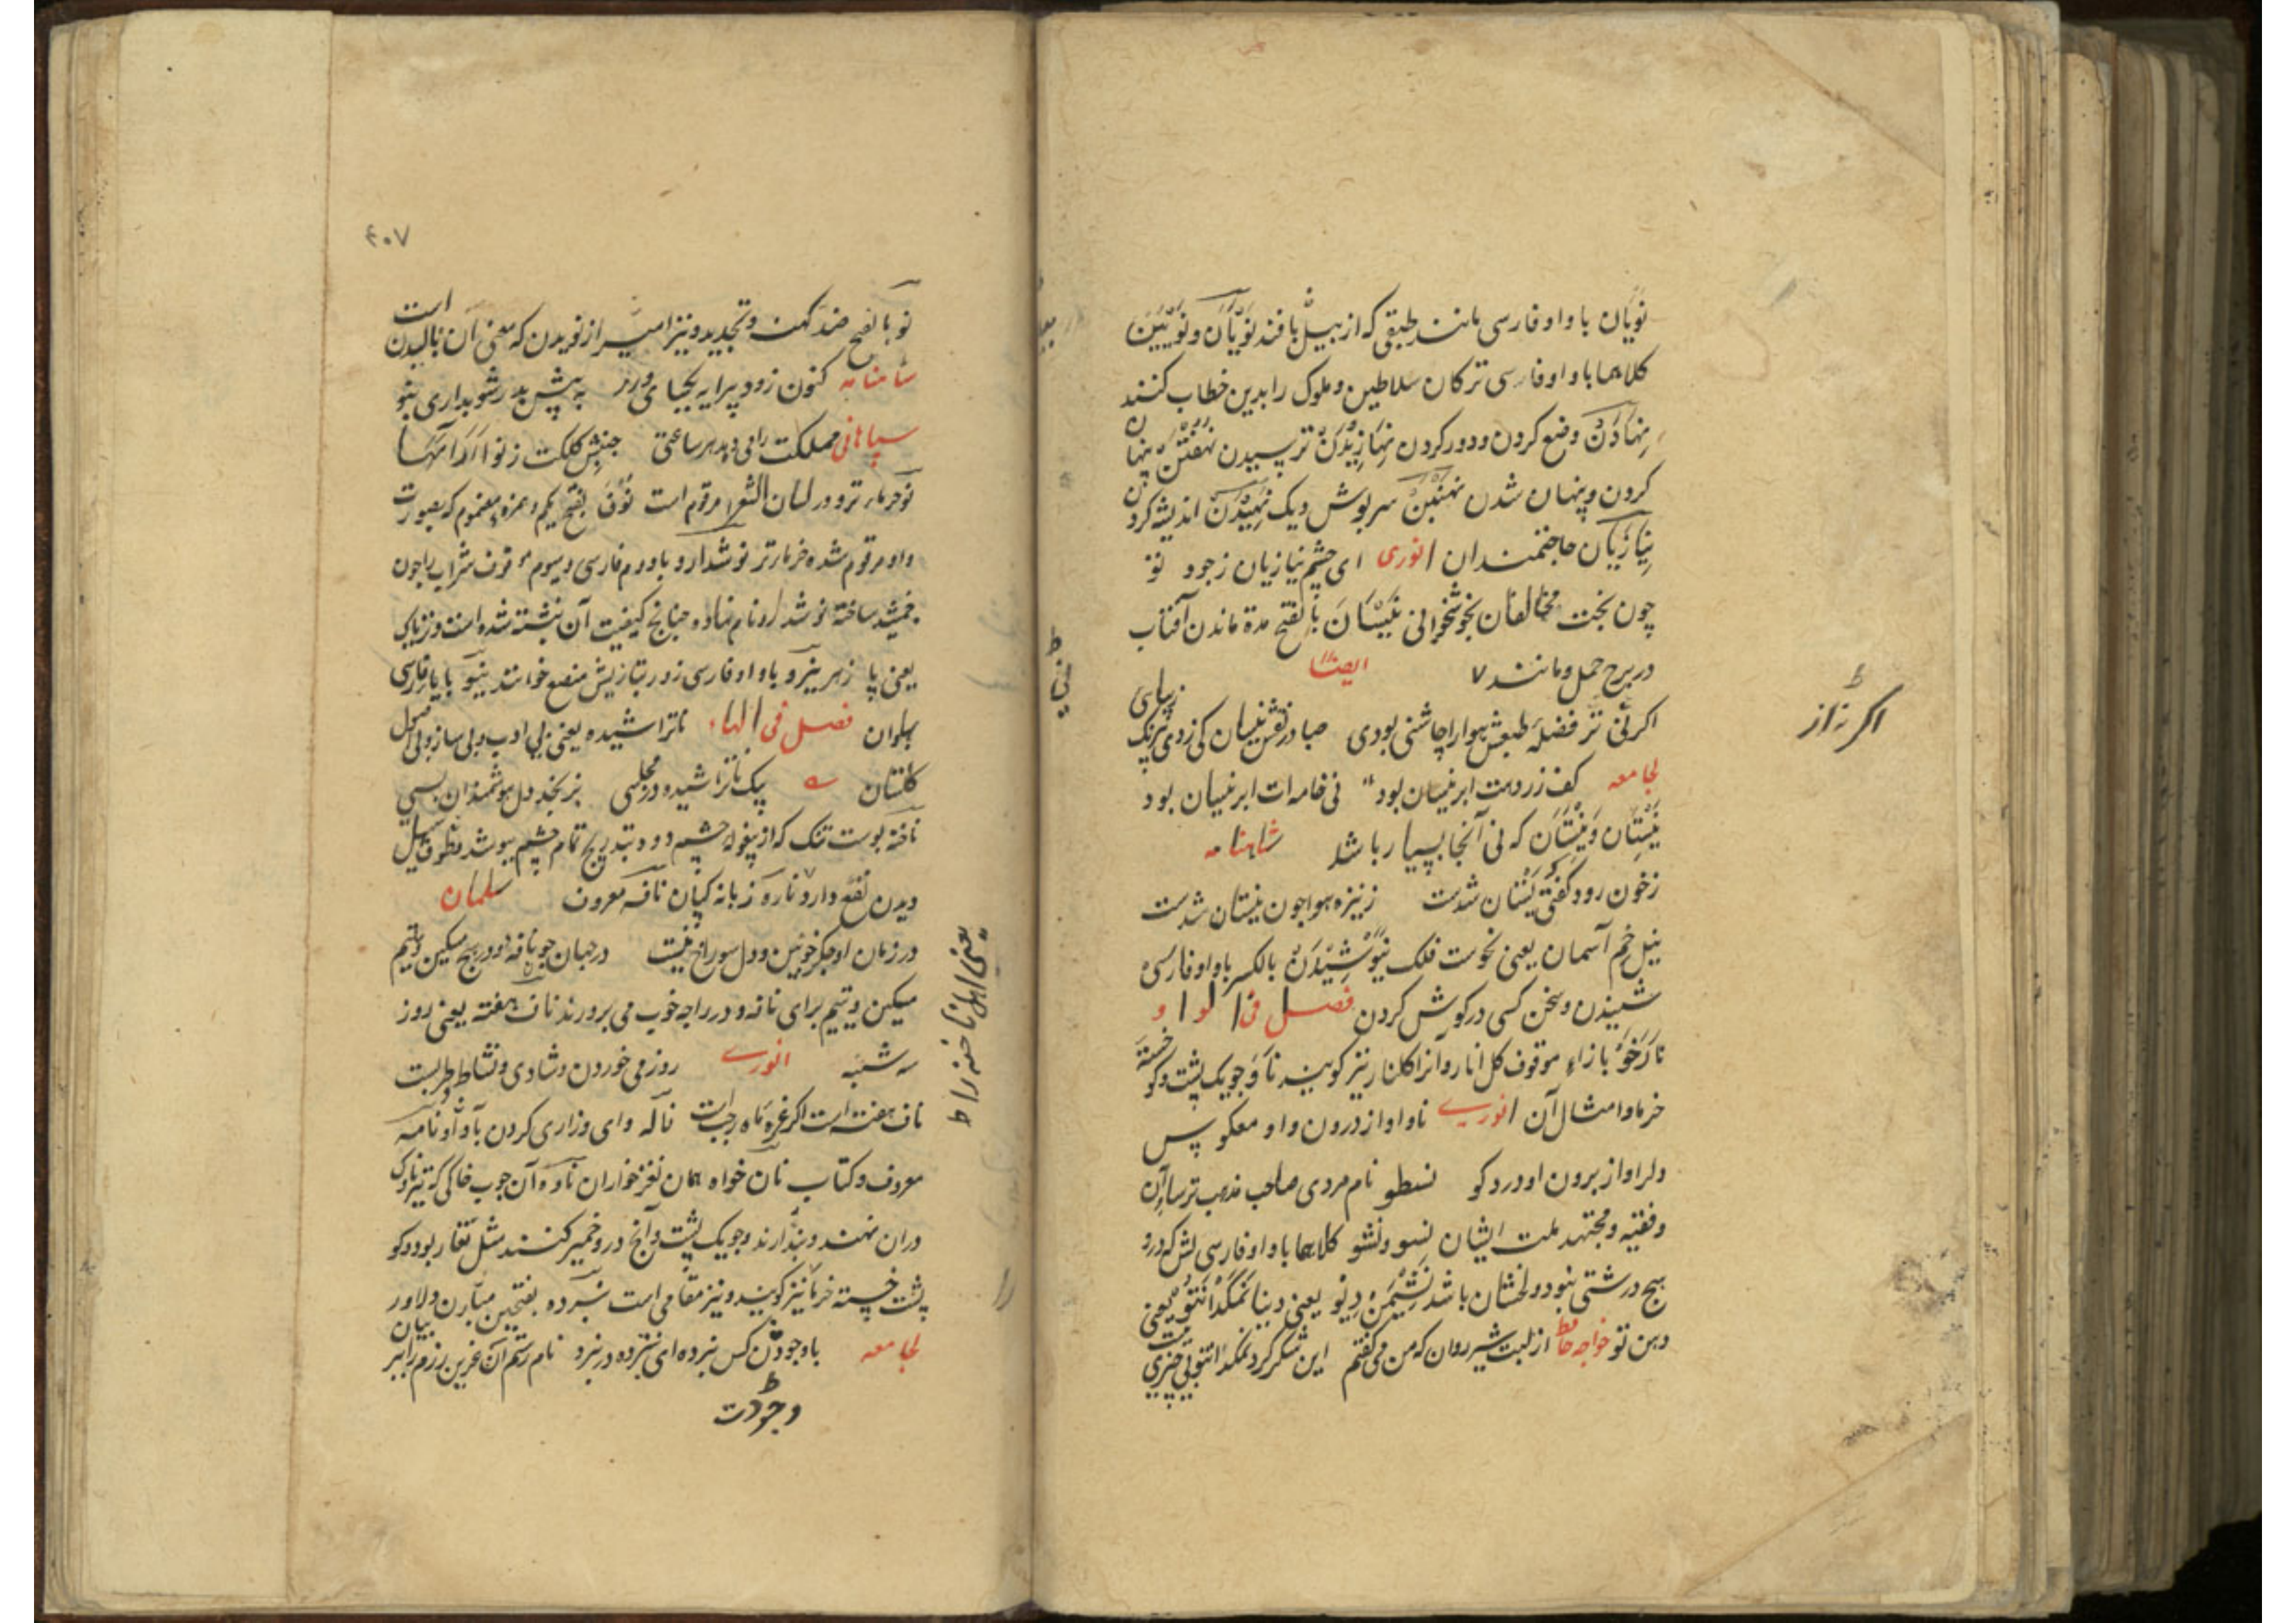 نویان با واو فارسی مانند طبقی که از بید بافند نویان و نویین
کلاهما با واو فارسی ترکان سلاطین و ملوک را بدین خطاب کنند
نهادن وضع کردن و دور کردن نهازیدن ترسیدن نهفتن پنهان
کردن و پنهان شدن نهنبن سرپوش دیک نهیدن اندیشه کردن
نیازیان حاجتمندان انوری ای چشم نیازیان ز جود تو
چون بخت مخالفان بخوشخوانی نیسان بالفتح مدة ماندن آفتاب
در برج حمل و مانند ایضا
اکر نی فضله طبعش هوا را چاشنی بودی صبا در نقش نیسان کی زدی نیرنک زیبای
اکر نه از
لجامعه کف زر دهت ابر نیسان بود نی خامه ات ابر نیسان بود
نیستان و نیستان که نی آنجا بسیار باشد شاهنامه
ز خون رود کفتی نیستان شدست ز نیزه هوا چون نیستان شدست
نیل خم آسمان یعنی نحوست فلک نیوشیدن بالکسر با واو فارسی
شنیدن و سخن کسی در کوش کردن فصل فی الواو
نارخو بازاء موقوف کل انار و آنرا کلنار نیز کویند ناو جویک پشت و کو خسته
خرما و امثال آن انوری ناو او از درون و او معکوس
ولراو از برون او در دو کو نسطو نام مردی صاحب مذهب ترساآن
و فقیه و مجتهد ملت ایشان نسو و نشو کلاهما با واو فارسی لش که درو
هیچ درشتی نبود و لخشان باشد نشیمن دیو یعنی دنیا نمکدان تو یعنی
دهن تو خواجه حافظ از لبت شیر روان که من می کفتم این شکر کرد نمکدان تو بی چیزی نیست
۴۰۷
نو بالفتح ضد کهنه و تجدید و نیز امر از نویدن که معنی آن نالیدن است
شاهنامه کنون زود پیرایه بکشای و رو به پیش پدر شو بزاری بنو
سپاهانی مملکت را می دهد هر ساعتی جنبش کلکت ز نو
نو حرمار ترو در لسان الشعرا مرقوم است نوف بفتح یکم و همزه مضموم که بصورت
واو مرقوم شده خرمار تر نوشدارو با دوم فارسی و سیوم موقوف شراب را چون
جمشید ساخته نوشدارو نام نهاده چنانچ کیفیت آن نبشته شده است و تریاک
یعنی پا زهر نیرو با واو فارسی زور بتازیش منعه خوانند نیو با یاء فارسی
پهلوان فصل فی الهاء ناتراشیده یعنی بی ادب و بی ساز و بی محل
کلستان یک ناتراشیده در مجلسی برنجد دل هوشمندان بسی
ناخنه پوست تنک که از پیغوله چشم دود و بتدریج تمام چشم بپوشد
دیدن نفع دارد ناره زبانه کپان نافه معروف سلمان
در زمان او جکر خونین و دل سوراخ نیست در جهان جز نافه و در هیچ مسکین و یتیم
مسکین و یتیم برای نافه و در راجه خوب می برورند ناف هفته یعنی روز
سه شنبه انوری روز می خوردن و شادی و نشاط و طربست
ناف هفته است اکر غره ماه رجب است ناله وای و زاری کردن بآواز نامه
معروف و کتاب نان خواه همان نغنخواران ناوه آن چوب خاکی که
دران نهند و بندارند و جویک پشت و آنچ درو خمیر کنند مثل تغار بود و کو
پشت خسته خرما نیز کویند و نیز مقامی است نبرده بفتحین مبارز و دلاور
لجامعه با وجودت کس نبرده ای نبرده در نبرد نام رستم
وجودت
یعنی اهل ناخنه را